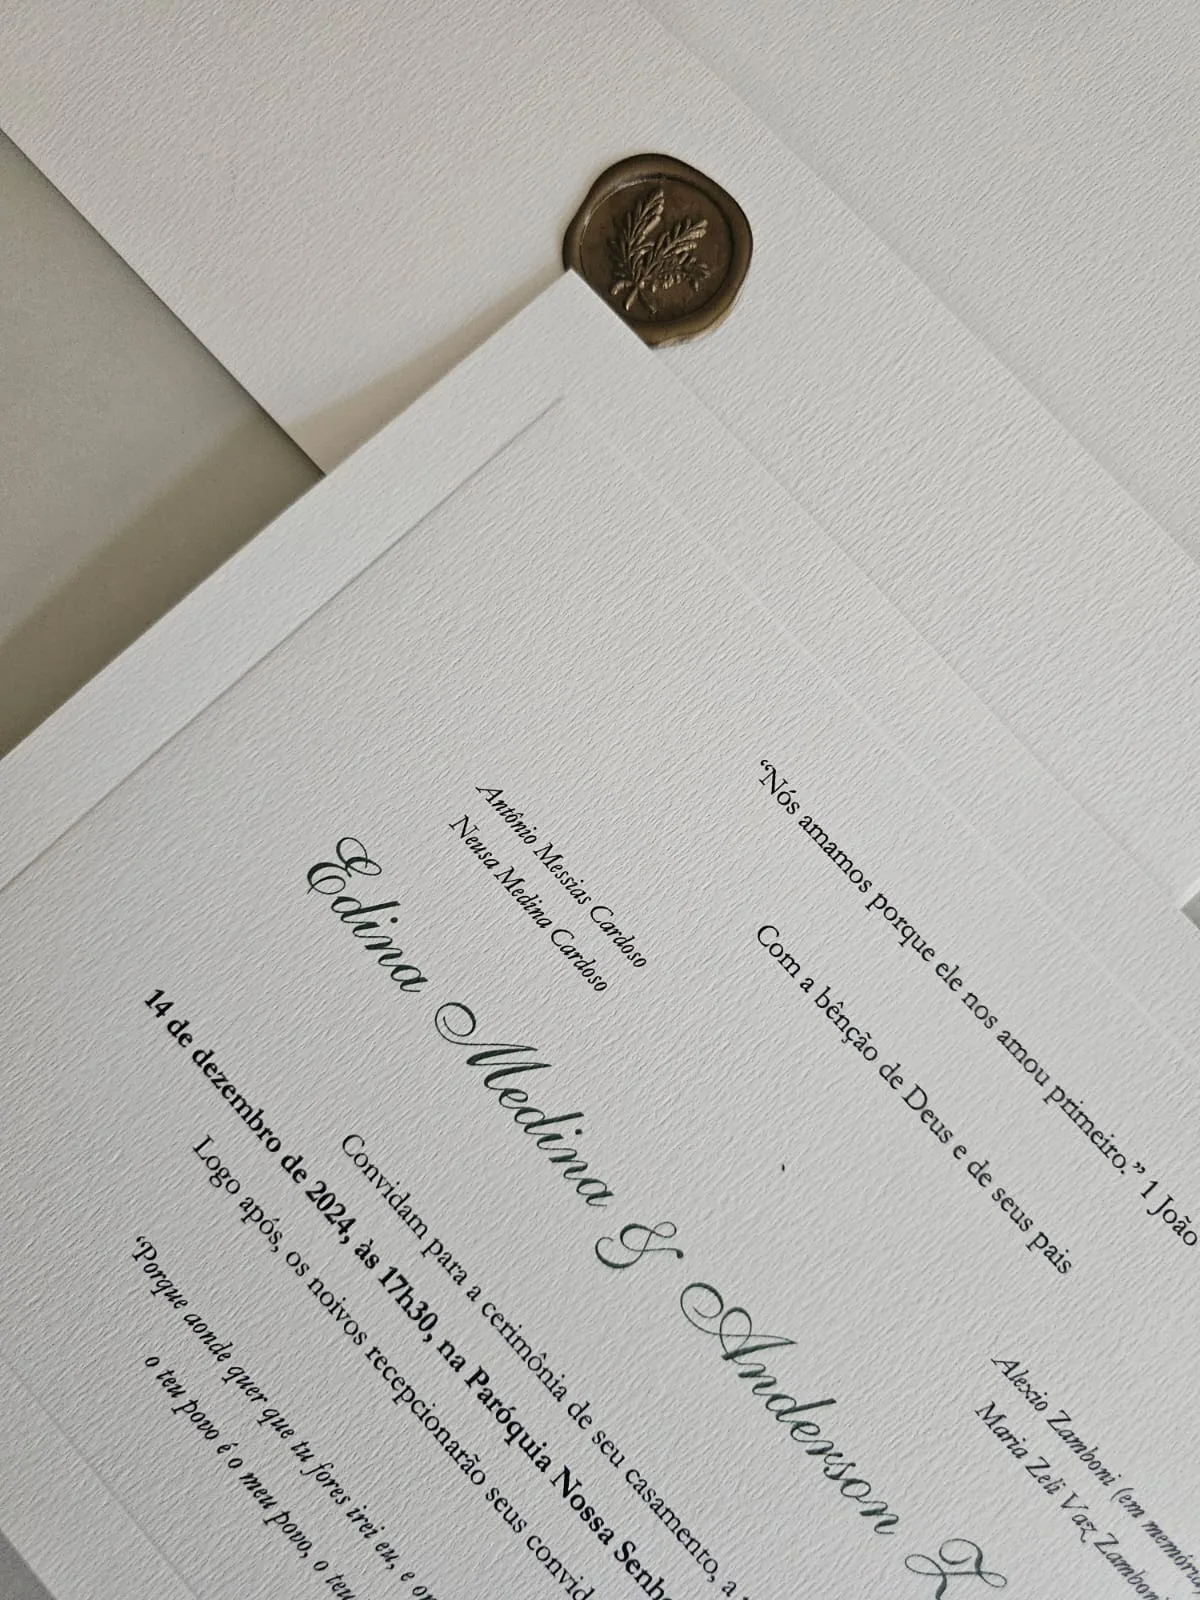 “Nós amamos porque ele nos amou primeiro.” 1 João
Com a bênção de Deus e de seus pais
Antônio Messias Cardoso
Neusa Medina Cardoso
Alexio Zamboni (em memória)
Maria Zeli Vaz Zamboni
Edina Medina & Anderson Z
Convidam para a cerimônia de seu casamento, a
14 de dezembro de 2024, às 17h30, na Paróquia Nossa Senho
Logo após, os noivos recepcionarão seus convid
“Porque aonde quer que tu fores irei eu, e on
o teu povo é o meu povo, o teu